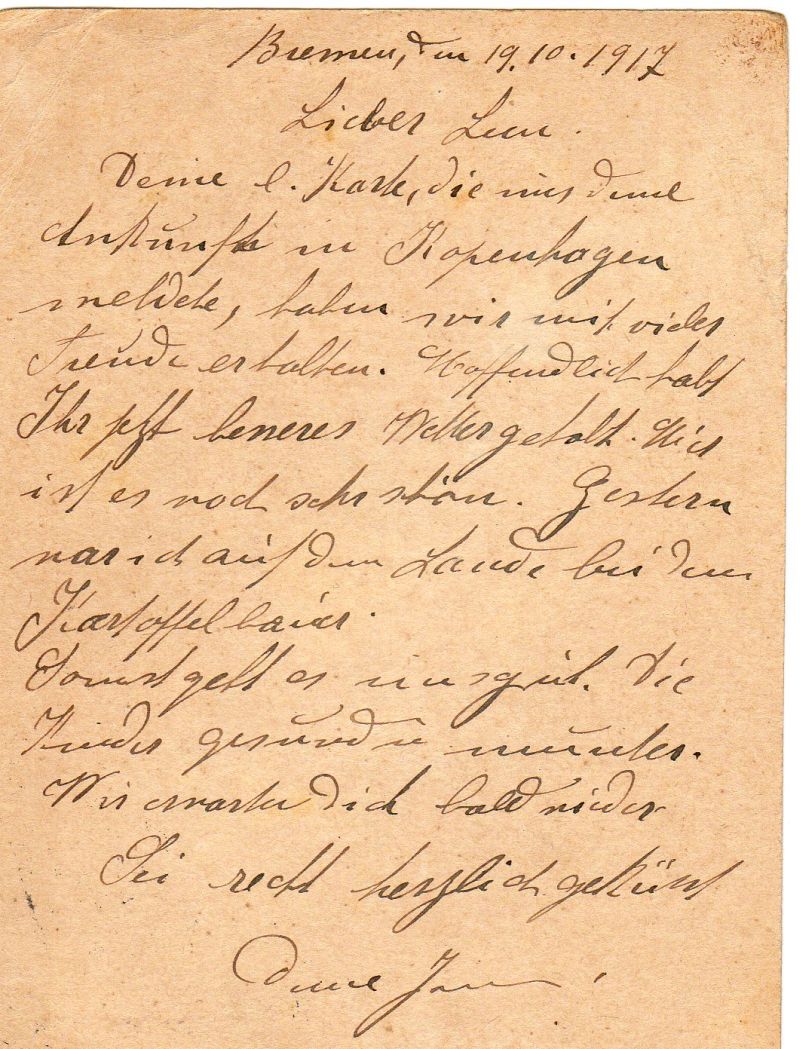 Bremen, den 19.10.1917
Lieber
Deine l. Karte, die uns deine
Ankunft in Kopenhagen
meldete, haben wir mit vieler
Freude erhalten. Hoffendlich habt
Ihr jetzt besseres Wetter gehabt. Hier
ist es noch sehr schön. Gestern
war ich auf dem Lande bei dem
Kartoffelbauer.
Sonst geht es uns gut. Die
Kinder gesund u munter.
Wir erwarten Dich bald wieder
Sei recht herzlich geküsst
Deine